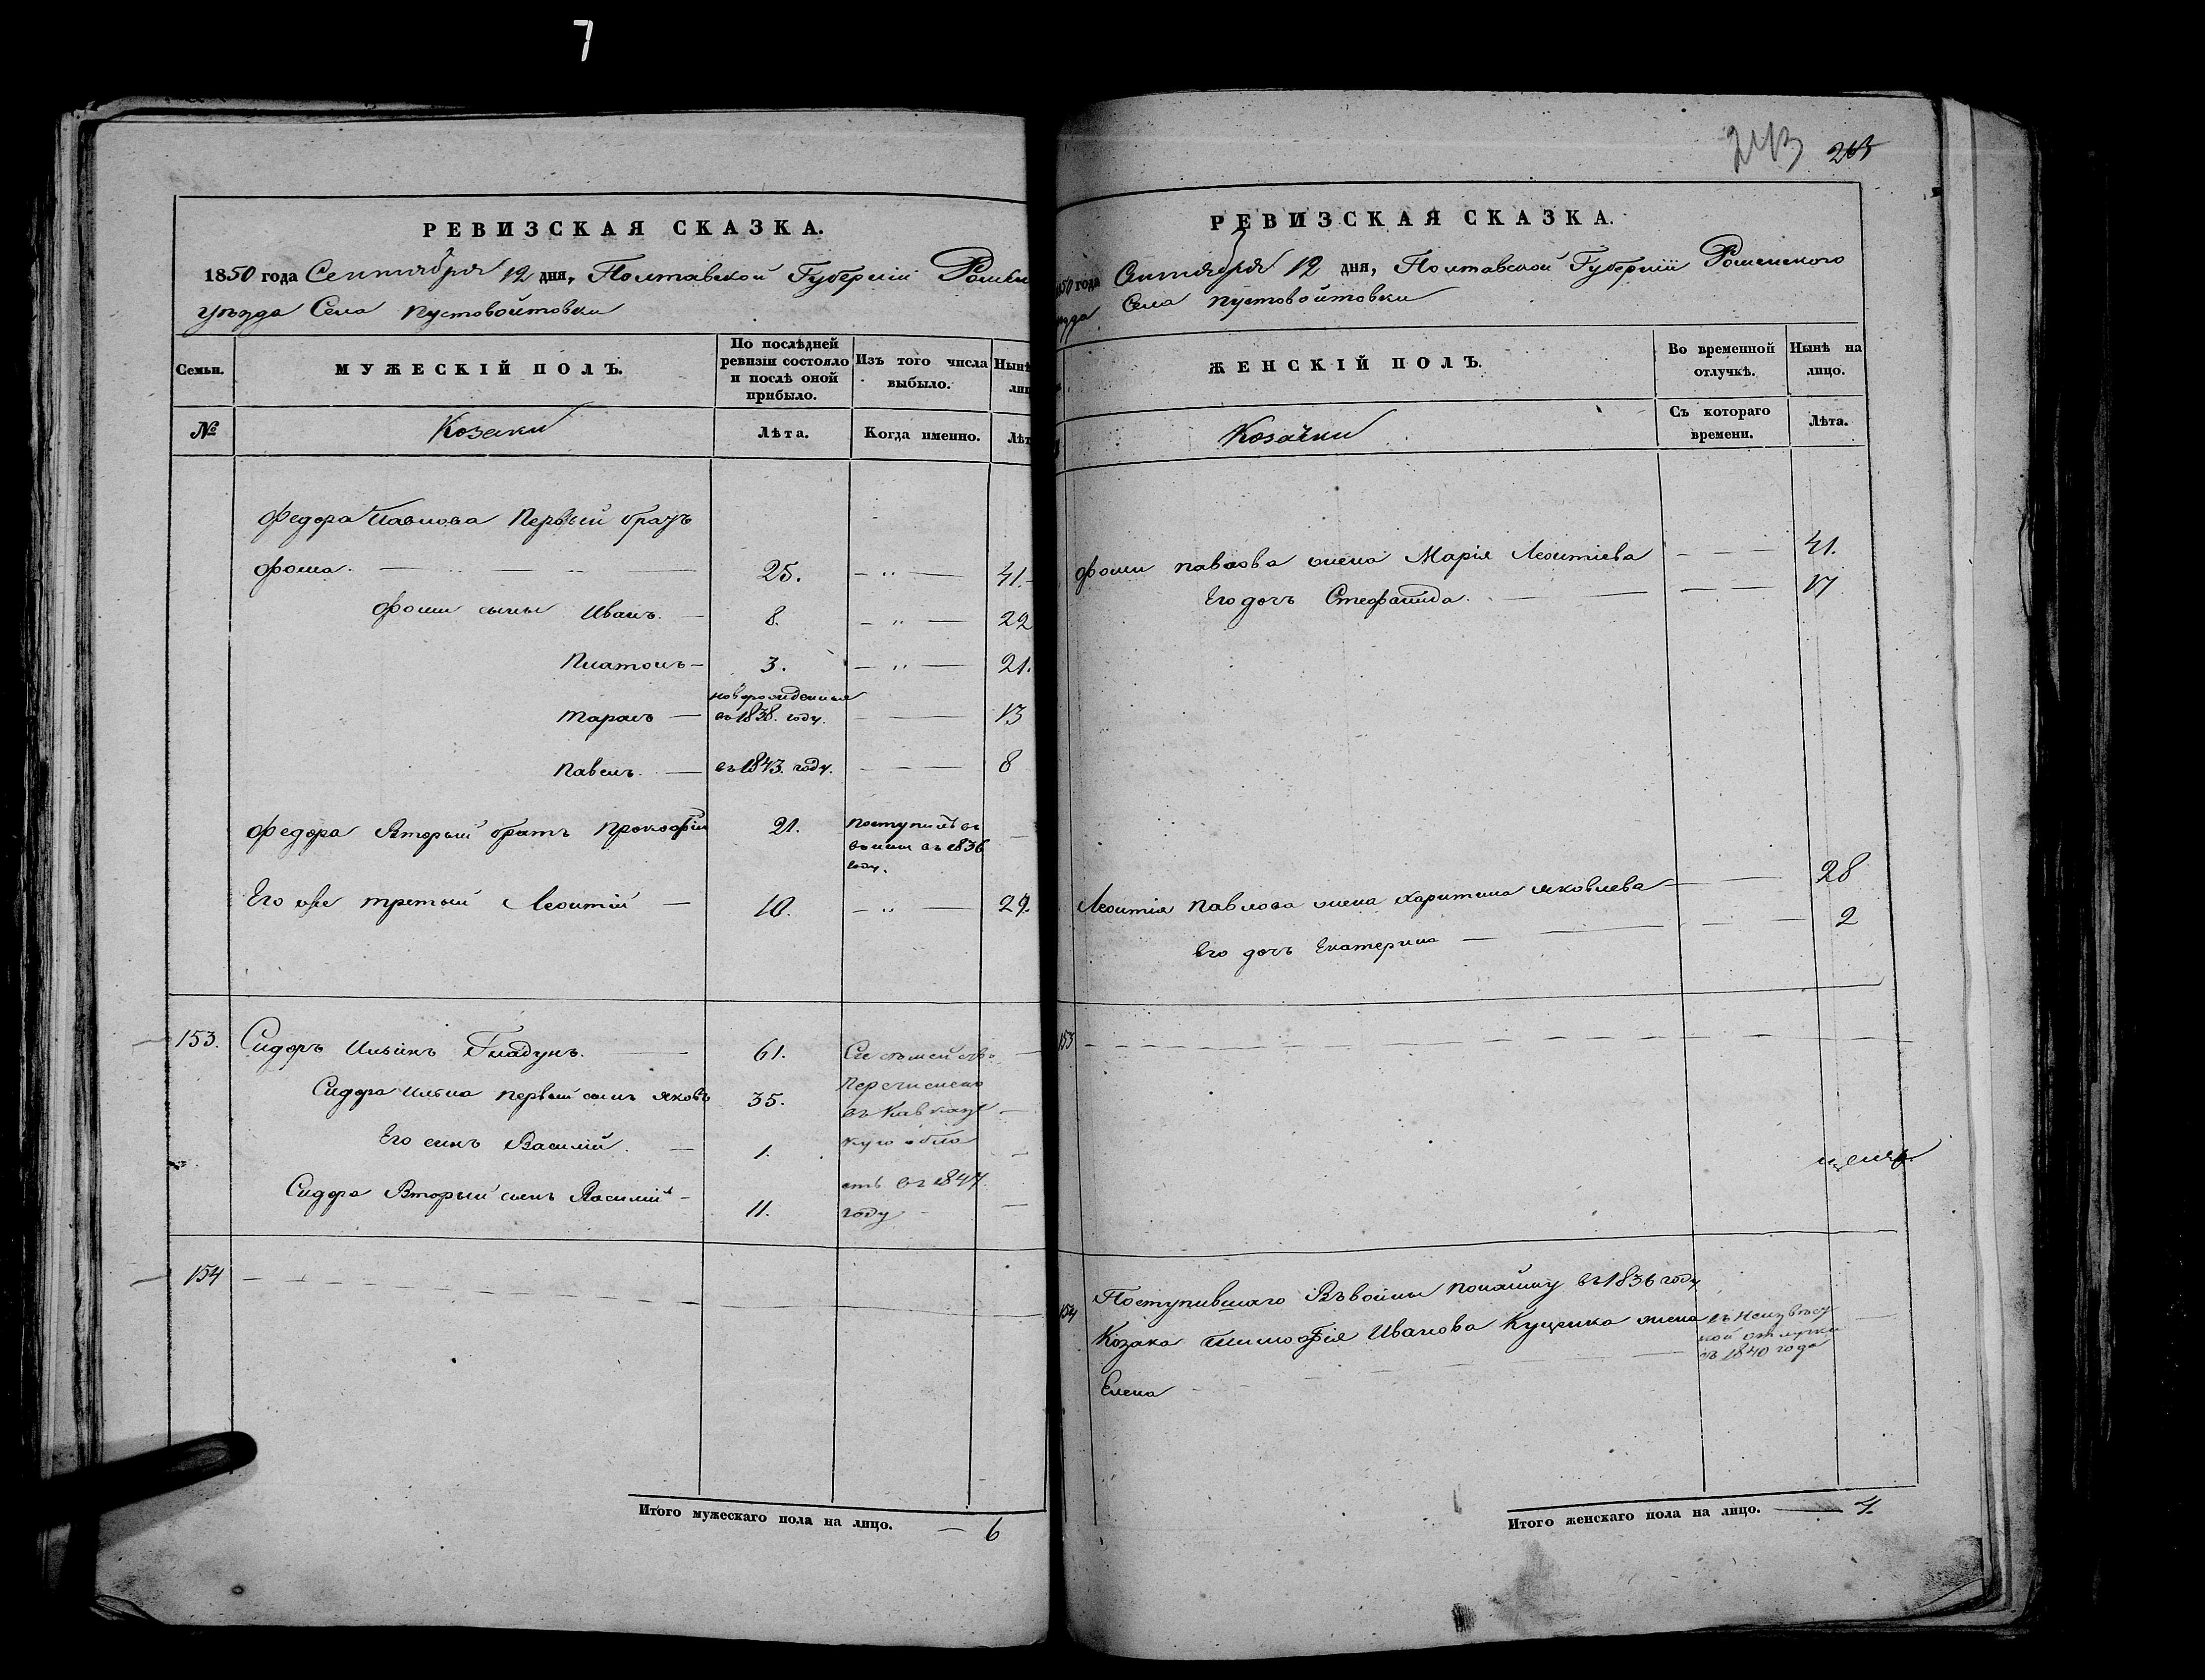 7
213 265
РЕВИЗСКАЯ СКАЗКА.
1850 года Сентября 12 дня, Полтавской Губерніи
уѣзда Села Пустовойтовки
Семьи. МУЖЕСКІЙ ПОЛЪ. По послѣдней ревизіи состояло и послѣ оной прибыло. Изъ того числа выбыло. Нынѣ
№ Козаки Лѣта. Когда именно. Лѣт
Федора Павлова Первый братъ
Фома 25. 41.
Фомы сыны Иванъ 8. 22
Платонъ 3. 21.
новорожденные
Тарасъ въ 1838. году. 13
Павелъ въ 1843. году. 8
Федора Вторый братъ Прокофій 21. поступилъ въ
воины въ 1836
году.
Его же третый Леонтій 10. 29.
153. Сидоръ Ильинъ Гладунъ. 61. Сіе семейство
Сидора Ильина первый сынъ Яковъ 35. перечислено
въ Кавказс
Его сынъ Василій. 1. кую обла
Сидора Вторый сынъ Василій 11. сть въ 1847
году
154
Итого мужескаго пола на лицо. 6
РЕВИЗСКАЯ СКАЗКА.
1850 года Сентября 12 дня, Полтавской Губерніи Роменского
Села Пустовойтовки
ЖЕНСКІЙ ПОЛЪ. Во временной отлучкѣ. Нынѣ на лицо.
Козачки Съ котораго времени. Лѣта.
Фомы Павлова жена Марія Леонтіева 41.
Его дочь Стефанида. 17
Леонтія Павлова жена Харитина Яковлева 28
Его дочь Екатерина 2
153
154 Поступившаго Въ воины по найму въ 1836 году
Козака Тимофія Иванова Куценка жена въ неизвѣст
ной отлучки
съ 1840 года
Елена
Итого женскаго пола на лицо. 4.